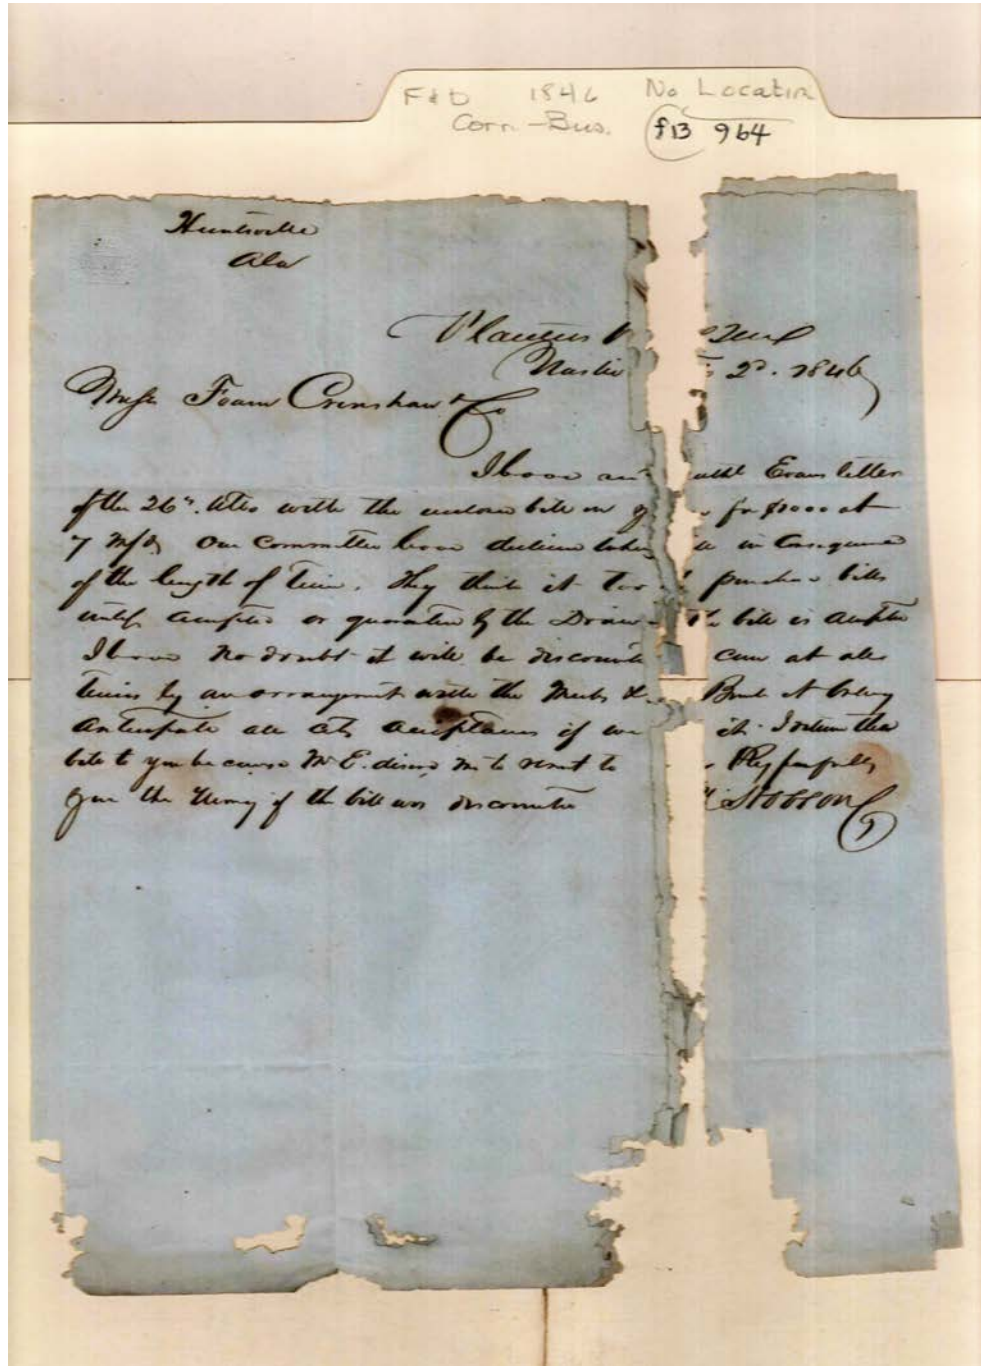 F&D 1846 No Location
Corr.-Bus. f13 964
Huntsville
Ala
Planters
Nash 2d. 1846
Messr Fearn Crenshaw & Co
I have Evans letter
of the 26th. Ulto with the enclosed bill on for $1000 at
7 M/d Our Committee have declined in Consequence
of the length of time. They think it too purchase bills
unless accepted or guarantied by the bill is accepted
I have no doubt it will be at all
times by an arrangement with the Bank
anticipate all its acceptances if we it. I return the
bill to you because Mr E. me to remit to Respectfully
you the Money if the bill was discounted Hobson